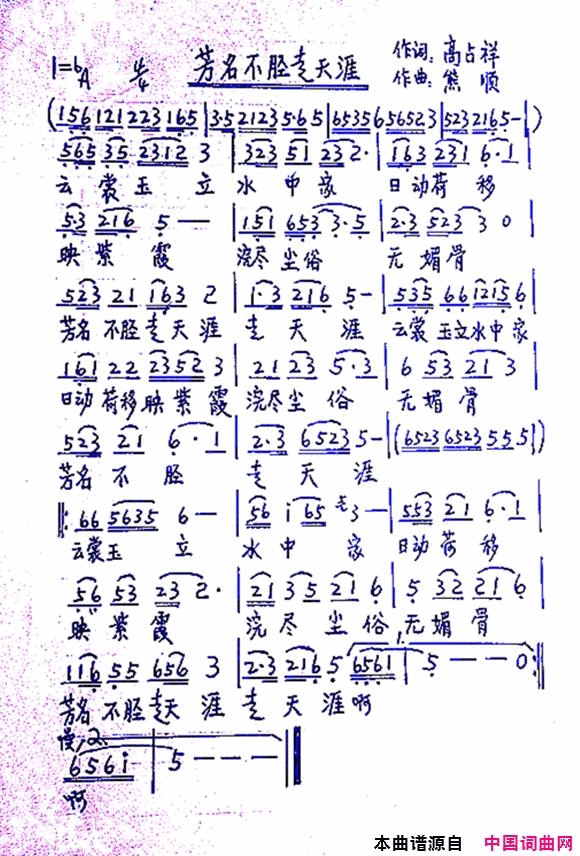 1=♭A 4/4 芳名不胫走天涯 作词:高占祥
作曲:熊顺
(156 1212 23165|3·5 2123 5·65|65356 56523|523 2165-|)
565 35 2312 3|323 51 232·|163 231 6·1
云裳玉立 水中家 日动荷移
5·3 216 5--|151 653 3·5|2·3 523 3 0
映紫霞 浣尽尘俗 无媚骨
523 21 163 2|1·3 216 5-|535 66 12156|
芳名不胫走天涯 走天涯 云裳玉立水中家
161 22 2352 3|21 23 5·3|6 53 21 3
日动荷移映紫霞 浣尽尘俗 无媚骨
523 21 6·1|2·3 6523 5-|(6523 6523 555|)
芳名不胫 走天涯
‖:66 5635 6--|56 i 65 3--|553 21 6·1
云裳玉立 水中家 日动荷移
56 53 23 2·|21 35 21 6|5 32 21 6|
映紫霞 浣尽尘俗 无媚骨
1.
116 55 656 3|2·3 216 5 6561|5--0:‖
芳名不胫走天涯 走天涯 啊
慢,2.
656i|5---‖
啊
本曲谱源自 中国词曲网